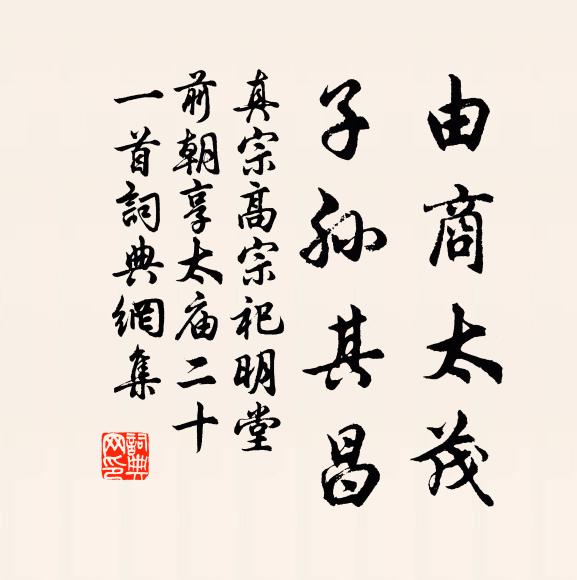 由商太茂
子孙其昌
真宗高宗祀明堂
前朝享太庙二十
一首詞典網集